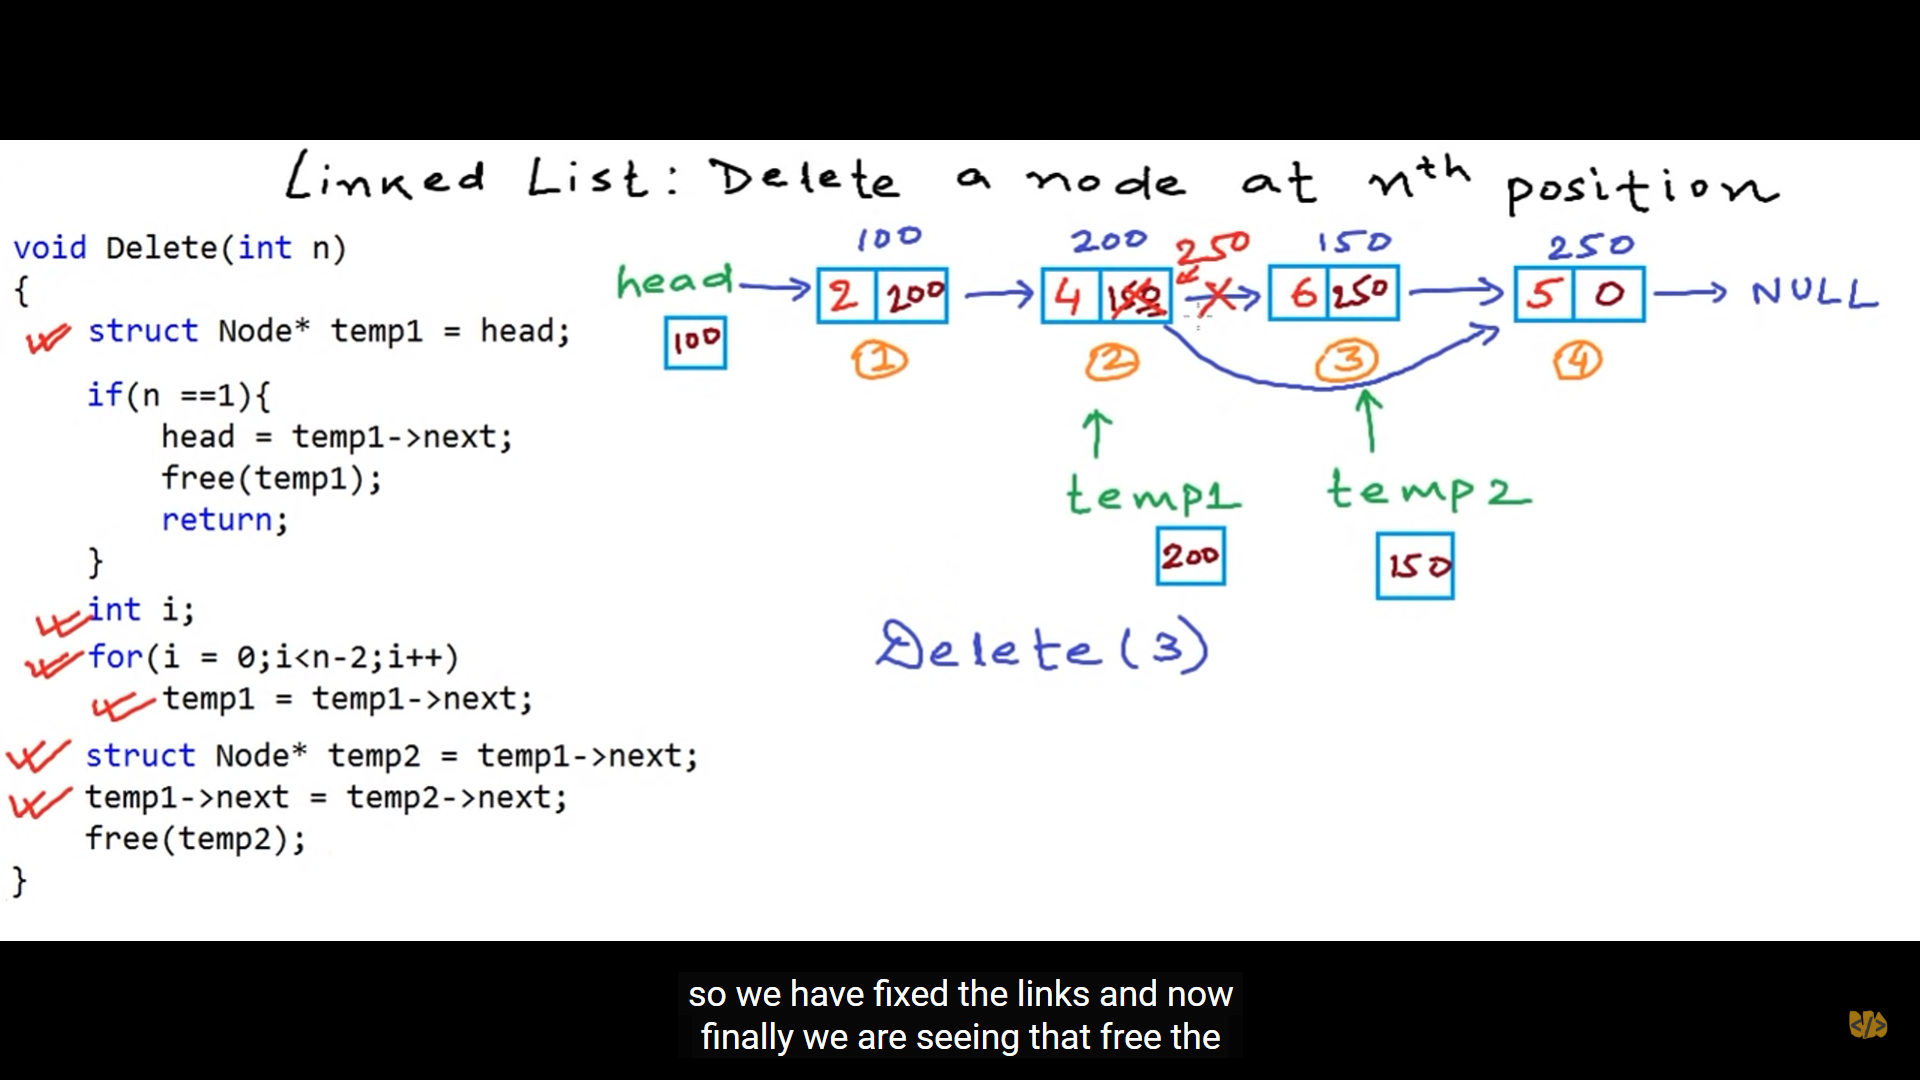 Linked List: Delete a node at nth position
void Delete(int n)
{
struct Node* temp1 = head;
if(n ==1){
head = temp1->next;
free(temp1);
return;
}
int i;
for(i = 0;i<n-2;i++)
temp1 = temp1->next;
struct Node* temp2 = temp1->next;
temp1->next = temp2->next;
free(temp2);
}
100 200 250 150 250
head 2 200 4 150 6 250 5 0 NULL
100 1 2 3 4
temp1 temp2
200 150
Delete(3)
so we have fixed the links and now
finally we are seeing that free the